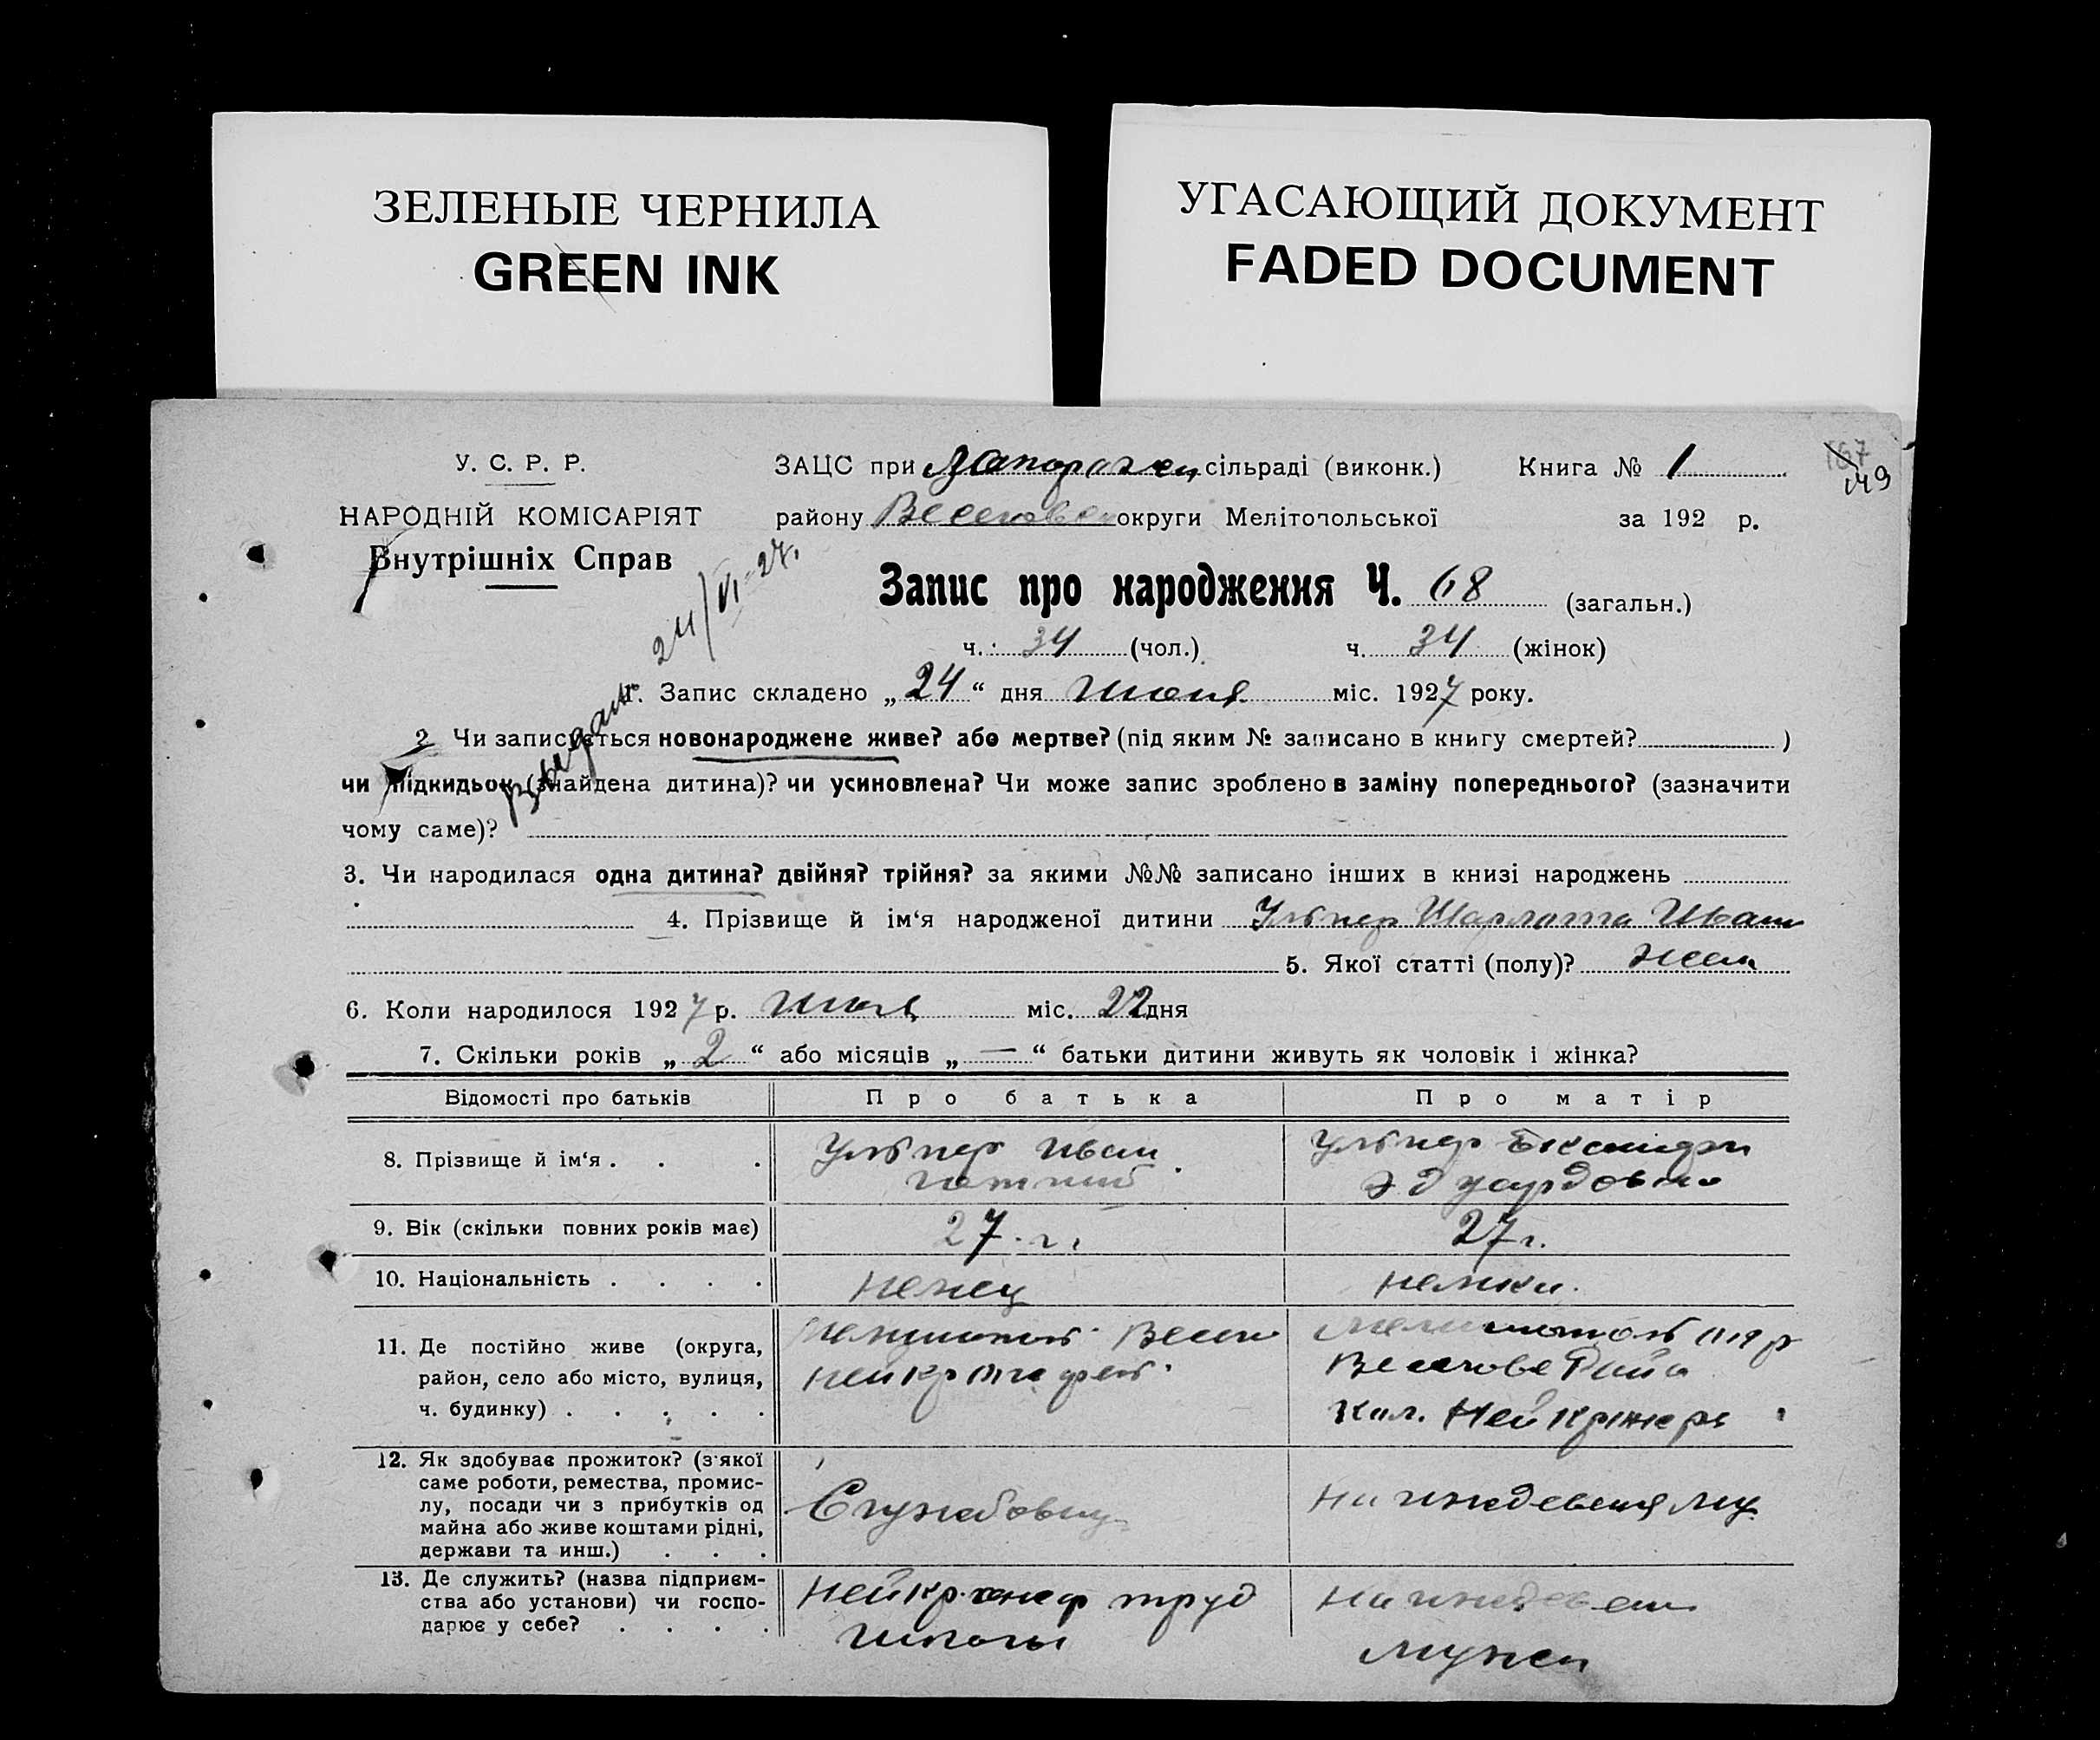 ЗЕЛЕНЫЕ ЧЕРНИЛА
GREEN INK
УГАСАЮЩИЙ ДОКУМЕНТ
FADED DOCUMENT
149
У. С. Р. Р.
НАРОДНІЙ КОМІСАРІЯТ
Внутрішніх Справ
ЗАЦС при сільраді (виконк.) Книга № 1
району округи Мелітопольської за 192 р.
24/VI-27.
Запис про народження Ч. 68 (загальн.)
ч. 34 (чол.) ч. 34 (жінок)
1. Запис складено „24“ дня июня міс. 1927 року.
2 Чи записується новонароджене живе? або мертве? (під яким № записано в книгу смертей? )
чи підкидьок (знайдена дитина)? чи усиновлена? Чи може запис зроблено в заміну попереднього? (зазначити
чому саме)?
3. Чи народилася одна дитина? двійня? трійня? за якими №№ записано інших в книзі народжень
4. Прізвище й ім‘я народженої дитини Ульпер Шарлотта Иван
5. Якої статті (полу)? жен
6. Коли народилося 1927 р. міс. 22 дня
7. Скільки років „2“ або місяців „—“ батьки дитини живуть як чоловік і жінка?
Відомості про батьків Про батька Про матір
8. Прізвище й ім‘я . . . Ульпер Иван Ульпер
Эдуардовна
9. Вік (скільки повних років має) 27 г. 27 г.
10. Національність . . . . немец немка.
11. Де постійно живе (округа,
район, село або місто, вулиця,
ч. будинку) . . . . . Кол.
12. Як здобуває прожиток? (з'якої
саме роботи, ремества, промис-
лу, посади чи з прибутків од
майна або живе коштами рідні,
держави та инш.) . . .
на иждевения муж
13. Де служить? (назва підприєм-
ства або установи) чи госпо-
дарює у себе? . . . .
труд
школы
на
мужа